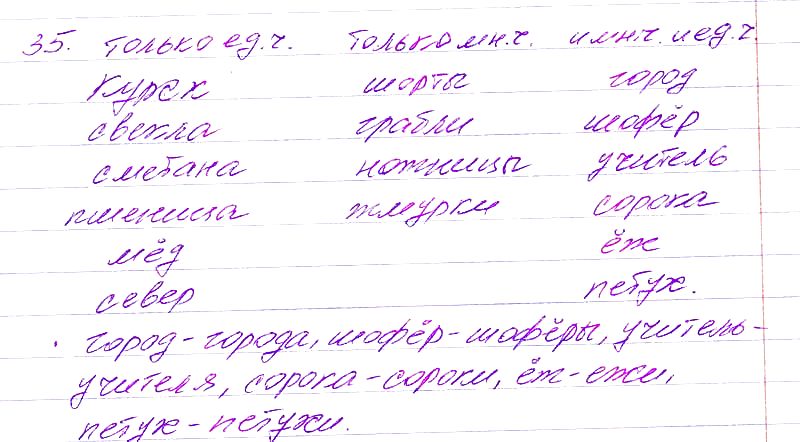 35. только ед.ч. только мн.ч. и мн.ч. и ед.ч.
Курск шорты город
свекла грабли шофёр
сметана ножницы учитель
пшеница жмурки сорока
мёд ёж
север петух.
город - города, шофёр - шофёры, учитель -
учителя, сорока - сороки, ёж - ежи,
петух - петухи.